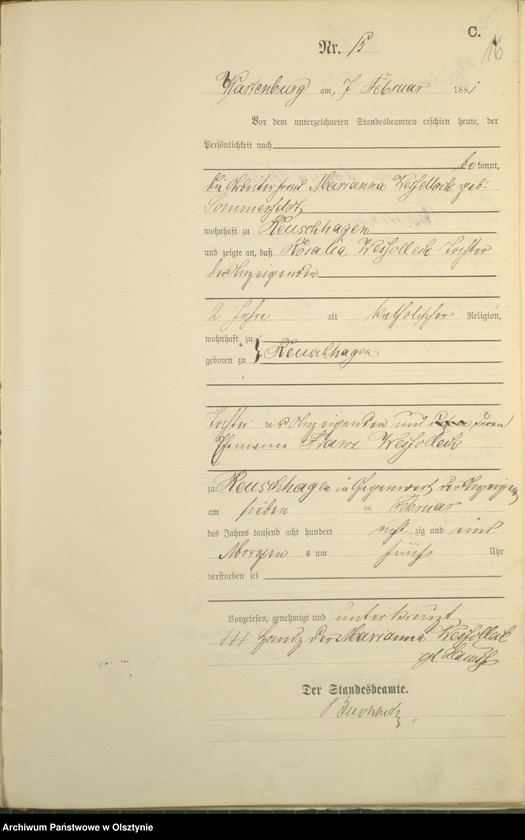 C.
16
Nr. 15
Wartenburg am 7 Februar 1881
Vor dem unterzeichneten Standesbeamten erschien heute, der
Persönlichkeit nach
bekannt,
die Arbeiterfrau Marianna Weissolleck geb:
wohnhaft zu Reuschhagen
und zeigte an, daß Rosalia Weissolleck Tochter
der Anzeigenden
2 Jahre alt katholischer Religion,
wohnhaft zu
geboren zu } Reuschhagen
Tochter der Anzeigenden und deren
Ehemanns Franz Weissolleck
zu Reuschhagen in Gegenwart der Anzeigenden
am sieben ten Februar
des Jahres tausend acht hundert acht zig und eins
Morgens um fünf Uhr
verstorben sei
Vorgelesen, genehmigt und unterkreuzt
+++ Handz. der Marianna Weissolleck
Der Standesbeamte.
Archiwum Państwowe w Olsztynie